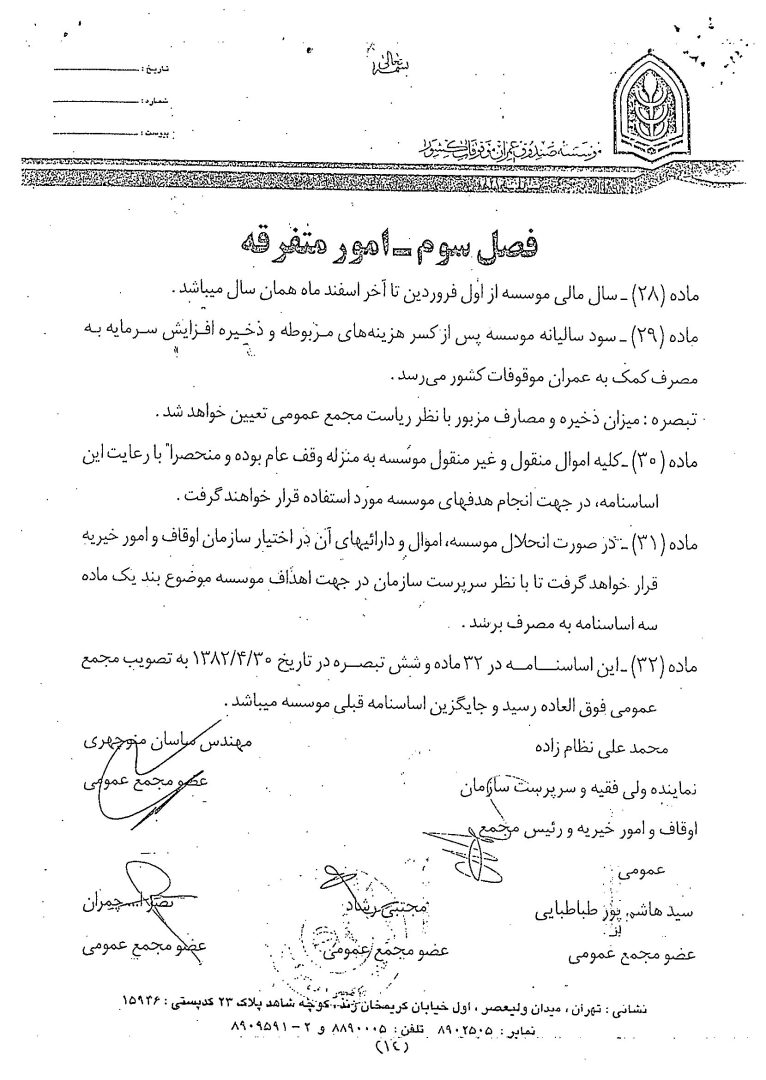 بسمه تعالی
تاریخ :
شماره :
پیوست :
موسسه صندوق عمران موقوفات کشور
فصل سوم ـ امور متفرقه
ماده (۲۸) ـ سال مالی موسسه از اول فروردین تا آخر اسفند ماه همان سال میباشد .
ماده (۲۹) ـ سود سالیانه موسسه پس از کسر هزینه‌های مربوطه و ذخیره افزایش سرمایه به
مصرف کمک به عمران موقوفات کشور می‌رسد .
تبصره : میزان ذخیره و مصارف مزبور با نظر ریاست مجمع عمومی تعیین خواهد شد .
ماده (۳۰) ـ کلیه اموال منقول و غیر منقول موسسه به منزله وقف عام بوده و منحصرا" با رعایت این
اساسنامه، در جهت انجام هدفهای موسسه مورد استفاده قرار خواهند گرفت .
ماده (۳۱) ـ در صورت انحلال موسسه، اموال و دارائیهای آن در اختیار سازمان اوقاف و امور خیریه
قرار خواهد گرفت تا با نظر سرپرست سازمان در جهت اهداف موسسه موضوع بند یک ماده
سه اساسنامه به مصرف برسد .
ماده (۳۲) ـ این اساسنامه در ۳۲ ماده و شش تبصره در تاریخ ۱۳۸۲/۴/۳۰ به تصویب مجمع
عمومی فوق العاده رسید و جایگزین اساسنامه قبلی موسسه میباشد .
محمد علی نظام زاده
مهندس ساسان منوچهری
نماینده ولی فقیه و سرپرست سازمان
عضو مجمع عمومی
اوقاف و امور خیریه و رئیس مجمع
عمومی
سید هاشم پور طباطبایی
مجتبی رشاد
نصرا... چمران
عضو مجمع عمومی
عضو مجمع عمومی
عضو مجمع عمومی
نشانی : تهران ، میدان ولیعصر ، اول خیابان کریمخان زند ، کوچه شاهد پلاک ۲۳ کدپستی : ۱۵۹۳۶
نمابر : ۸۹۰۲۵۰۵ تلفن : ۸۸۹۰۰۰۵ و ۲ - ۸۹۰۹۵۹۱
(۱۲)